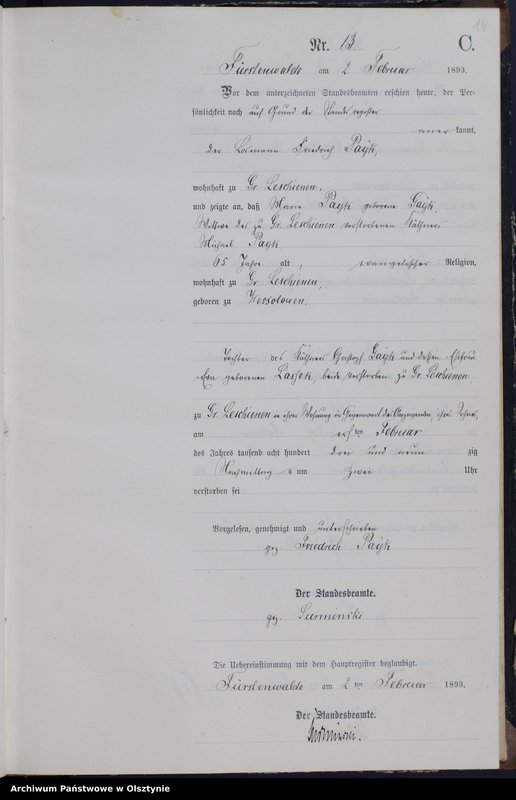 14
Nr. 13. C.
Fürstenwalde am 2 Februar 1893.
Vor dem unterzeichneten Standesbeamten erschien heute, der Per-
sönlichkeit nach auf Grund der Standesregister
anerkannt,
der Losmann Friedrich Payk,
wohnhaft zu Gr. Leschienen,
und zeigte an, daß Marie Payk geborene Gayk
Wittwe des zu Gr. Leschienen verstorbenen Käthners
Michael Payk
65 Jahre alt, evangelischer Religion,
wohnhaft zu Gr. Leschienen,
geboren zu Wessolowen,
Tochter des Käthners Christoph Gayk und dessen Ehefrau
Eva geborenen Lassek, beide verstorben zu Gr. Leschienen
zu Gr. Leschienen in ihrer Wohnung in Gegenwart des Anzeigenden, ihres Sohnes,
am ersten Februar
des Jahres tausend acht hundert drei und neunzig
Nachmittags um zwei Uhr
verstorben sei
Vorgelesen, genehmigt und unterschrieben
gez. Friedrich Payk
Der Standesbeamte.
gez. Surminski
Die Uebereinstimmung mit dem Hauptregister beglaubigt.
Fürstenwalde am 2 ten Februar 1893.
Der Standesbeamte.
Surminski.
Archiwum Państwowe w Olsztynie